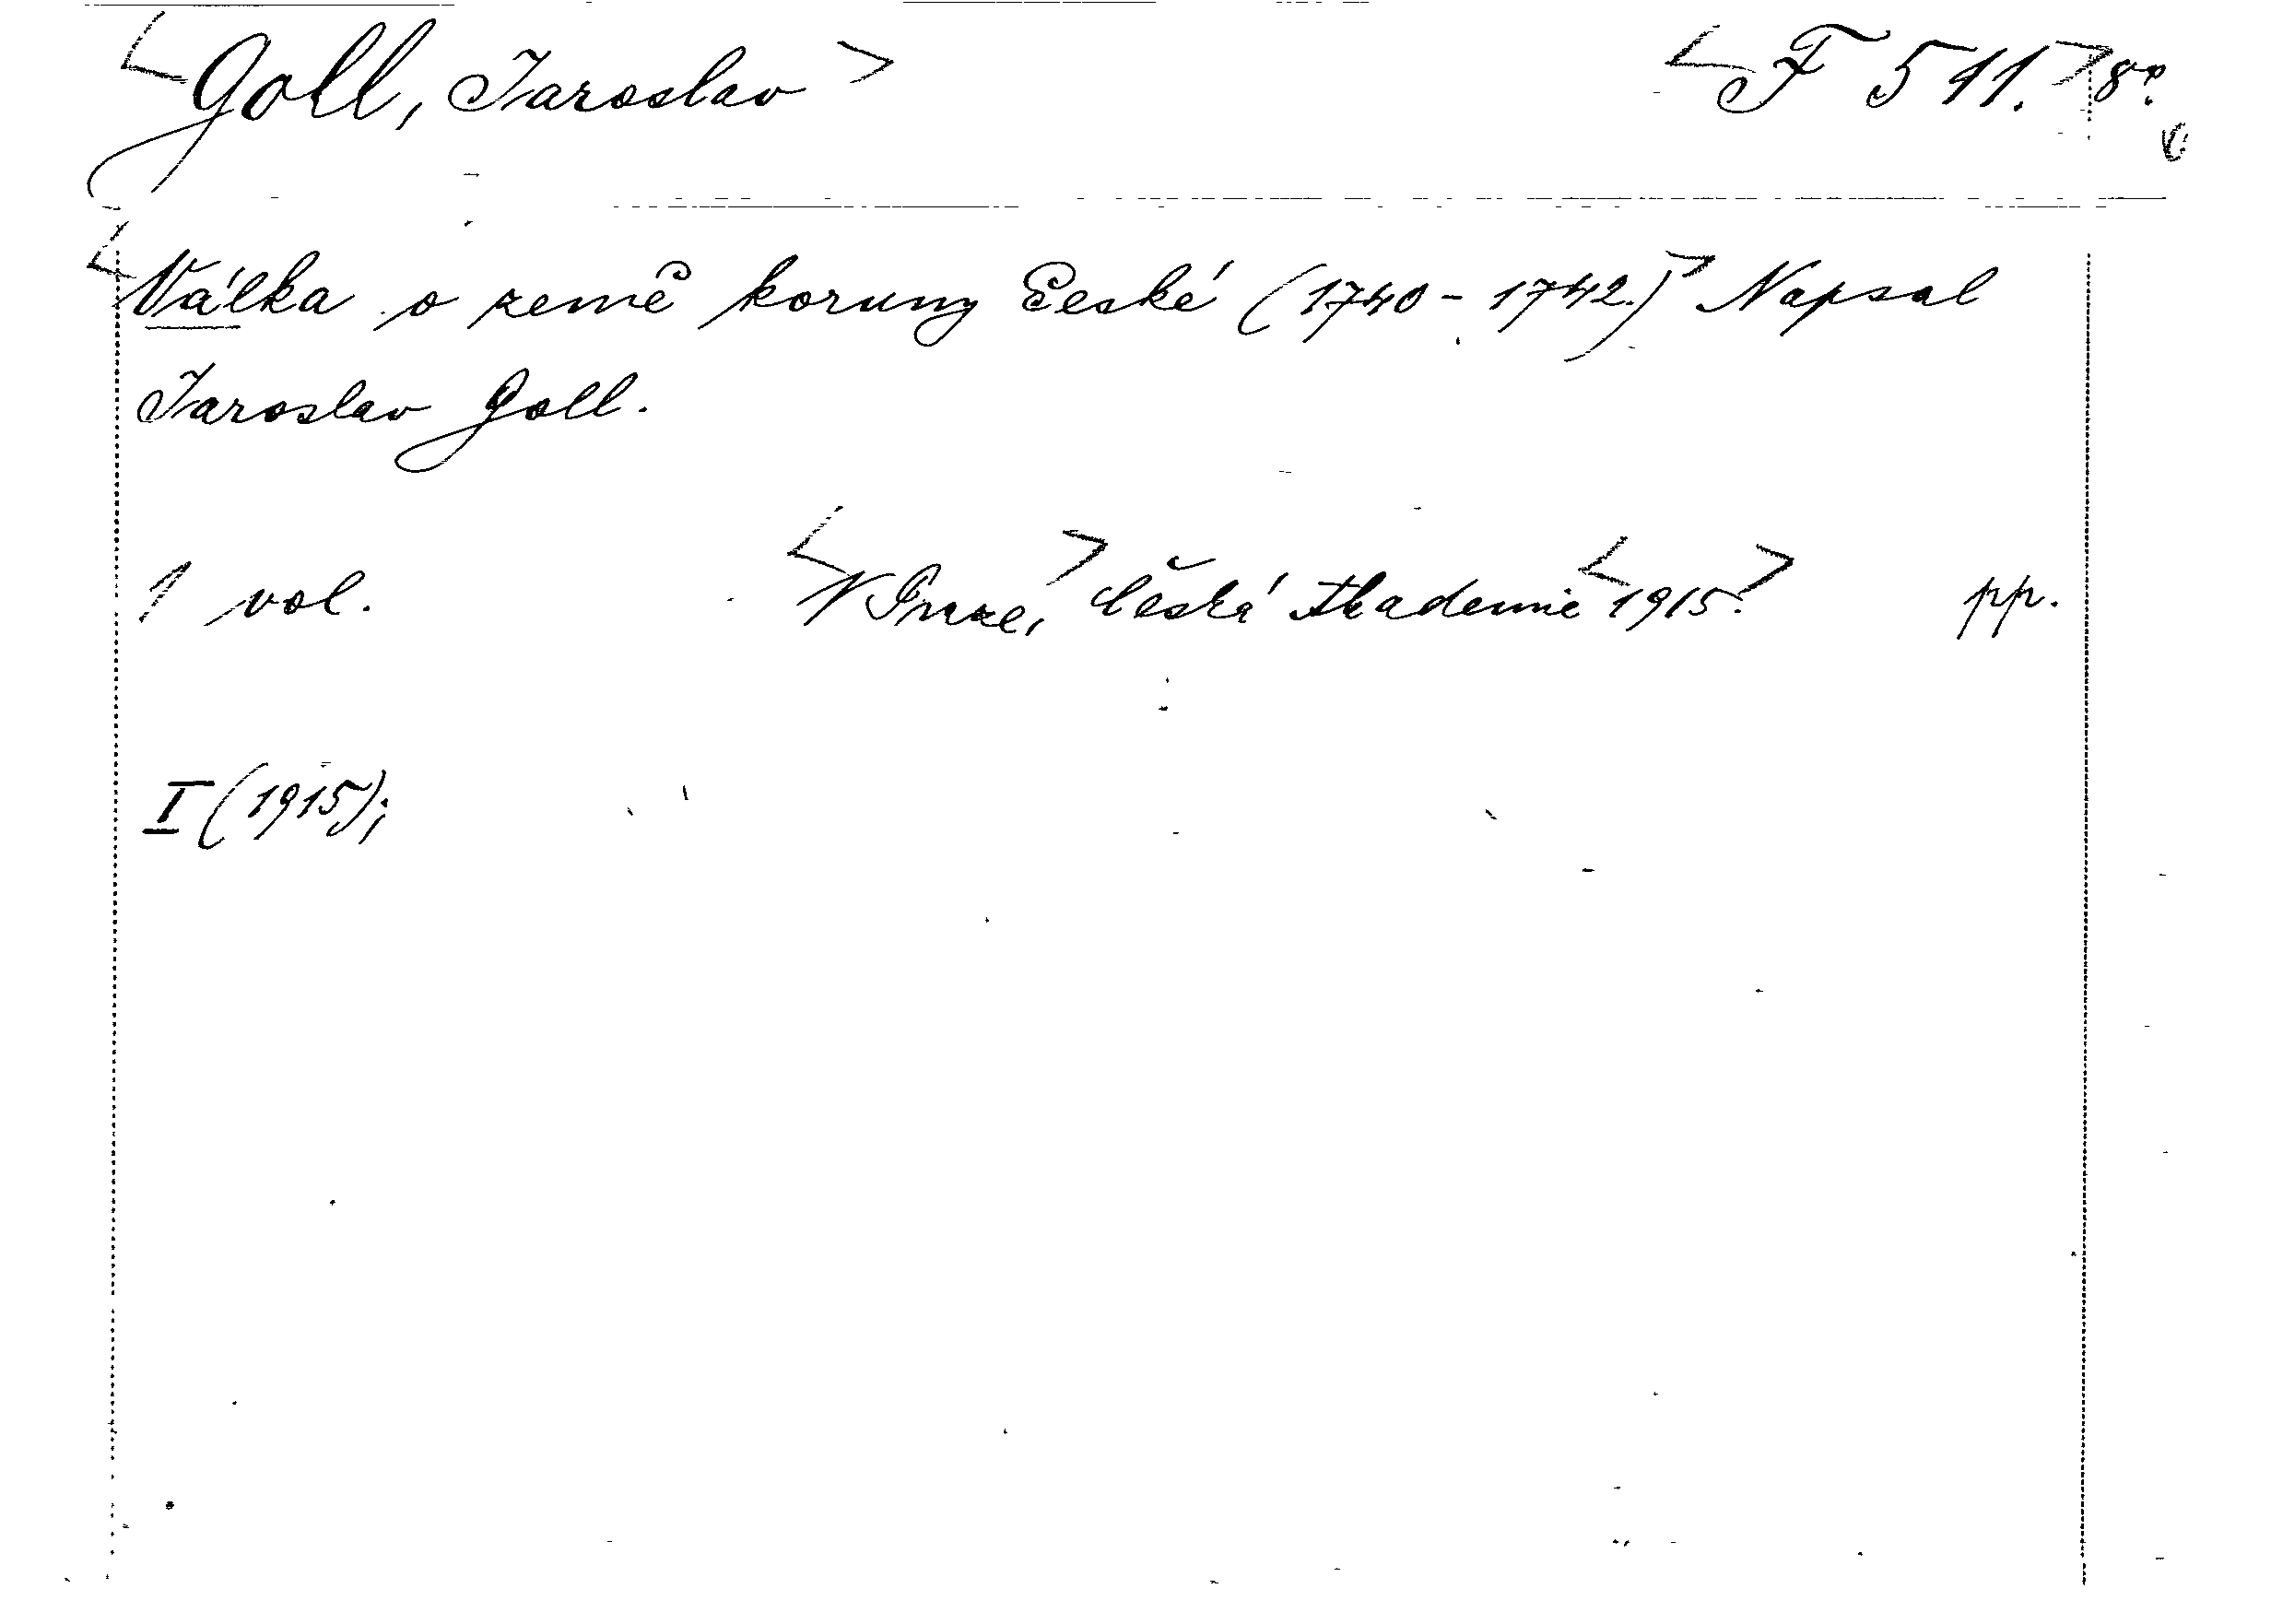 <Goll, Jaroslav> <F 511.> 8º.
<Válka o země koruny České (1740-1742.)> Napsal
Jaroslav Goll.
1 vol. <V Praze,> Česká Akademie <1915.> pp.
I (1915);